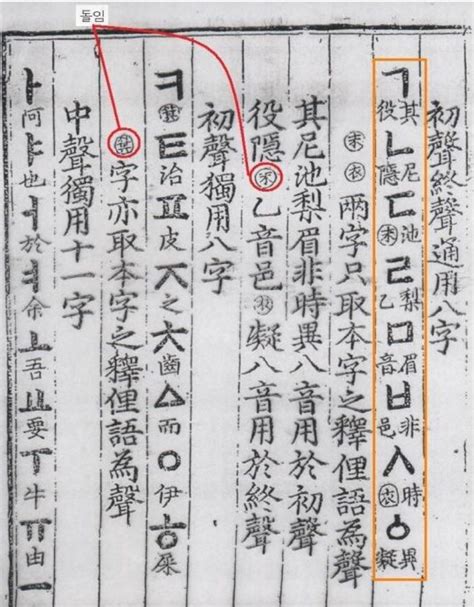 돌임
初聲終聲通用八字
ㄱ其役ㄴ尼隱ㄷ池末ㄹ梨乙ㅁ眉音ㅂ非邑ㅅ時衣ㆁ異凝
末衣兩字只取本字之釋俚語為聲
其尼池梨眉非時異八音用於初聲
役隱末乙音邑衣凝八音用於終聲
初聲獨用八字
ㅋ箕ㅌ治ㅍ皮ㅈ之ㅊ齒ㅿ而ㅇ伊ㅎ屎
箕字亦取本字之釋俚語為聲
中聲獨用十一字
ㅏ阿ㅑ也ㅓ於ㅕ余ㅗ吾ㅛ要ㅜ牛ㅠ由ㅡ